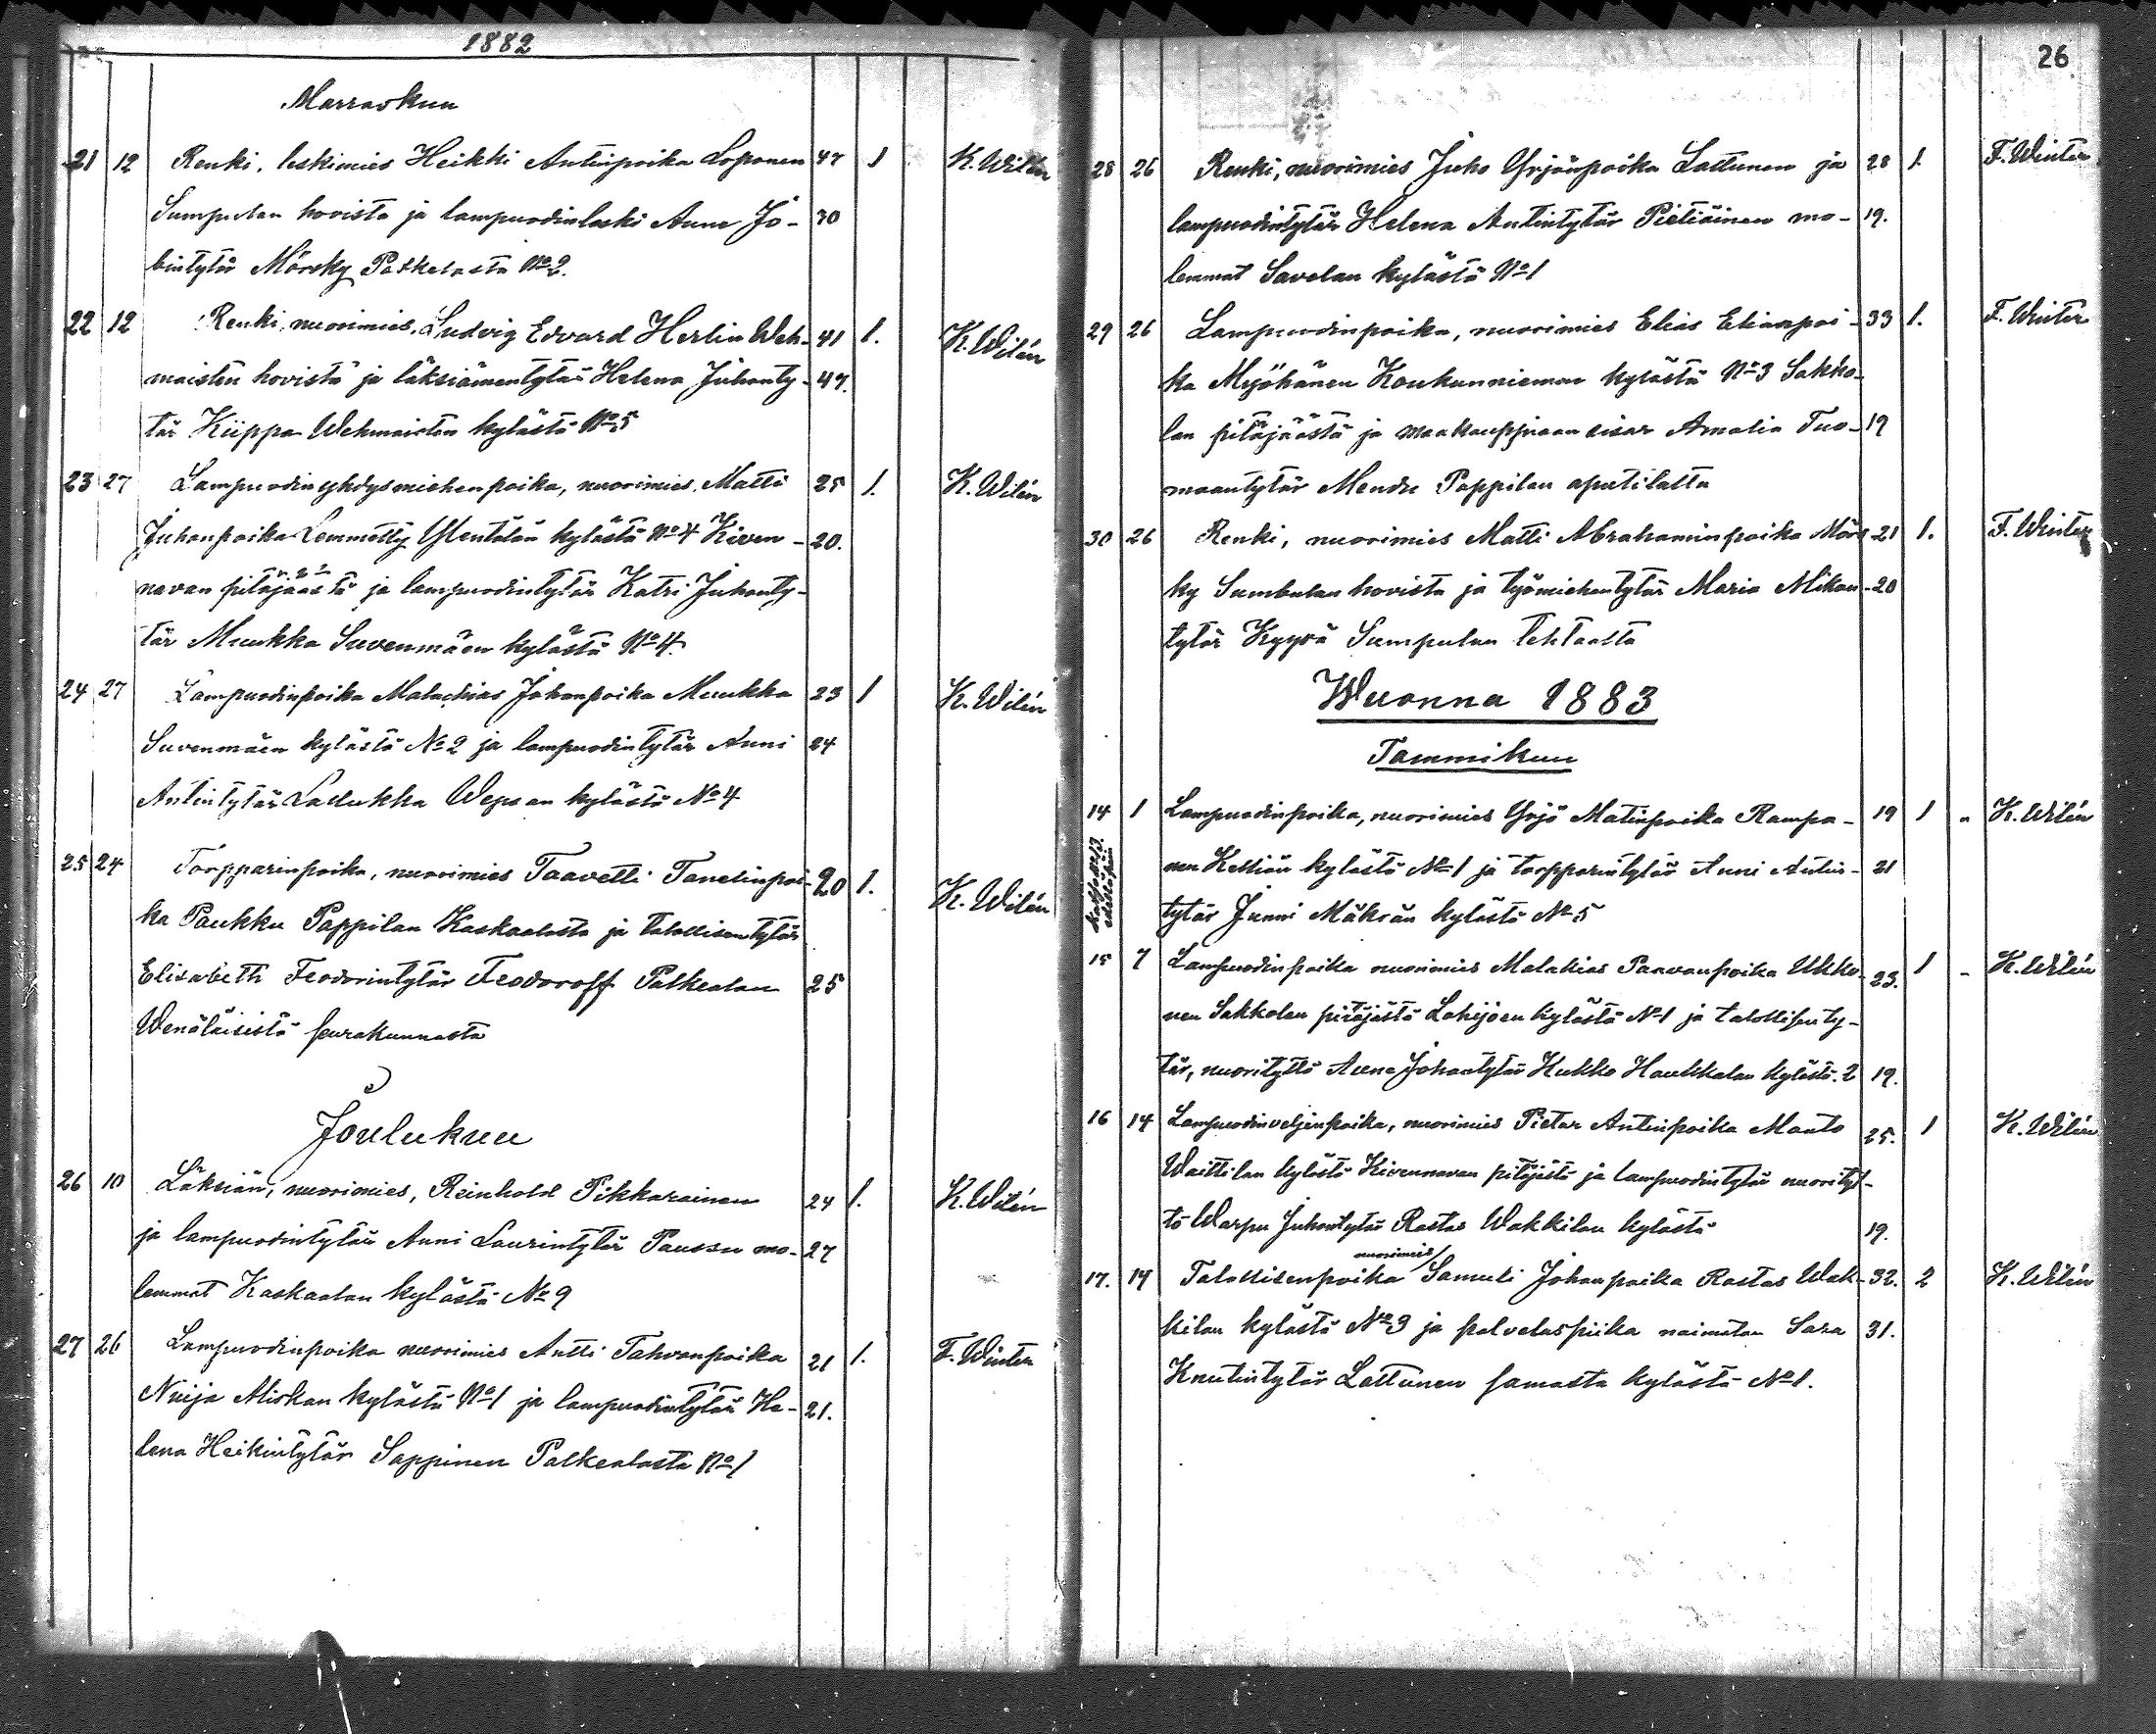 1882
Marraskuu
21 12 Renki, leskimies Heikki Antinpoika Loponen 47 1 K. Wilén
Sumpulan hovista ja lampuodinleski Anna Jo- 30
bintytär Mörsky Palkealasta No 2.
22 12 Renki, nuorimies, Ludvig Edvard Herlin Weh- 41 1. K. Wilén
maisten hovista ja läksiämentytär Helena Juhanty- 47.
tär Kiippa Wehmaisten kylästä No 5
23 27 Lampuodin yhdysmiehen poika, nuorimies, Matti 25 1. K. Wilén
Juhanpoika Lemmetty Ylentälän kylästä No 4 Kiven- 20.
navan pitäjäästä ja lampuodintytär Katri Juhanty-
tär Muukka Suvenmäen kylästä No 4.
24 27 Lampuodinpoika Malachias Johanpoika Muukka 23 1 K. Wilén
Suvenmäen kylästä No 2 ja lampuodintytär Anni 24
Antintytär Ladukka Wepsan kylästä No 4
25 24 Torpparinpoika, nuorimies Taavetti Tanelinpoi- 20 1. K. Wilén
ka Paukku Pappilan Kaskaalasta ja talollisentytär
Elisabeth Feodorintytär Feodoroff Palkealan 25
Wenäläisistä seurakunnasta
Joulukuu
26 10 Läksiän, nuorimies, Reinhold Pikkarainen 24 1. K. Wilén
ja lampuodintytär Anni Laurintytär Paussu mo- 27
lemmat Kaskaalan kylästä No 9
27 26 Lampuodinpoika nuorimies Antti Tahvanpoika 21 1. F. Winter
Niija Miskan kylästä No 1 ja lampuodintytär He- 21.
lena Heikintytär Sappinen Palkealasta No 1
26
28 26 Renki, nuorimies Juho Yrjönpoika Lattunen ja 28 1. F. Winter
lampuodintytär Helena Antintytär Pietiäinen mo- 19.
lemmat Savelan kylästä No 1
29 26 Lampuodinpoika, nuorimies Elias Eliaxpoi- 33 1. F. Winter
ka Myöhänen Koukunniemen kylästä No 3 Sakko-
lan pitäjäästä ja maakauppiaan sisar Amalia Tuo- 19
maantytär Mendu Pappilan aputilalta
30 26 Renki, nuorimies Matti Abrahaminpoika Mörs 21 1. F. Winter
ky Sumbulan hovista ja työmiehentytär Maria Mikon- 20
tytär Kyyrä Sumpulan tehtaalta
Wuonna 1883
Tammikuu
14 1 Lampuodinpoika, nuorimies Yrjö Matinpoika Rampa- 19 1 " K. Wilén
nen Kelliän kylästä No 1 ja torpparintytär Anni Antin- 21
tytär Junni Mäkrän kylästä No 5
15 7 Lampuodinpoika nuorimies Malakias Paavanpoika Ukko- 23. 1 - K. Wilén
nen Sakkolan pitäjästä Lohijoen kylästä No 1 ja talollisenty-
tär, nuorityttö Anna Johantytär Kukko Haukkalan kylästä. 2 19.
16 14 Lampuodinveljenpoika, nuorimies Pietar Antinpoika Manto 25. 1 K. Wilén
Waittilan kylästä Kivennavan pitäjästä ja lampuodintytär nuorityt-
tö Warpu Juhontytär Rastas Wakkilan kylästä 19.
nuorimies
17. 14 Talollisenpoika Samuli Johanpoika Rastas Wak- 32. 2 K. Wilén
kilan kylästä No 3 ja palveluspiika naimaton Sara 31.
Knutintytär Lattunen samasta kylästä No 1.